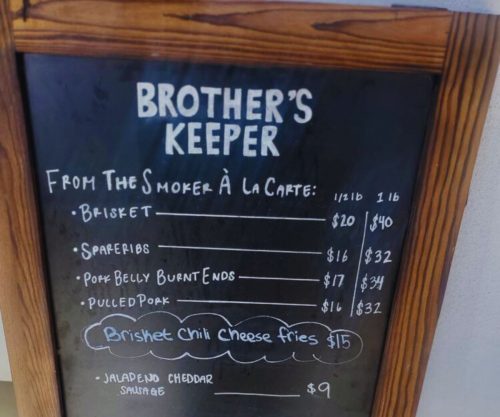 BROTHER'S
KEEPER
FROM THE SMOKER À LA CARTE: 1/2 lb 1 lb
• BRISKET $20 $40
• SPARERIBS $16 $32
• PORK BELLY BURNT ENDS $17 $34
• PULLED PORK $16 $32
Brisket Chili Cheese fries $15
• JALAPENO CHEDDAR
SAUSAGE $9